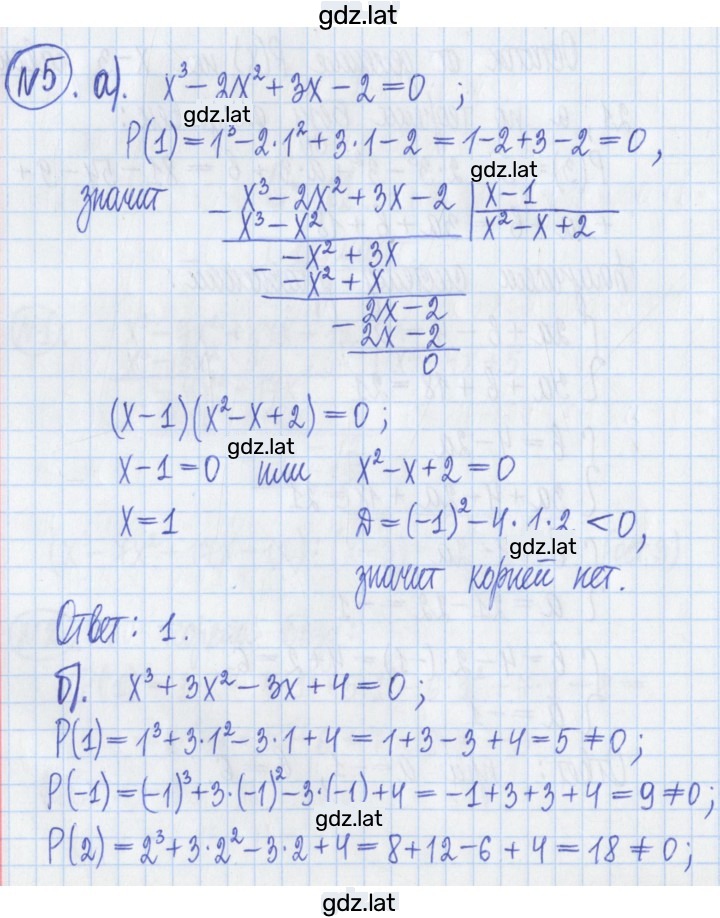 gdz.lat
№5. а). x³ – 2x² + 3x – 2 = 0 ;
gdz.lat
P(1) = 1³ – 2·1² + 3·1 – 2 = 1 – 2 + 3 – 2 = 0,
gdz.lat
значит – x³ – 2x² + 3x – 2 | x – 1
x³ – x² x² – x + 2
– – x² + 3x
– x² + x
– 2x – 2
2x – 2
0
(x – 1)(x² – x + 2) = 0 ;
gdz.lat
x – 1 = 0 или x² – x + 2 = 0
x = 1 D = (–1)² – 4·1·2 < 0,
gdz.lat
значит корней нет.
Ответ: 1.
б). x³ + 3x² – 3x + 4 = 0 ;
P(1) = 1³ + 3·1² – 3·1 + 4 = 1 + 3 – 3 + 4 = 5 ≠ 0 ;
P(–1) = (–1)³ + 3·(–1)² – 3·(–1) + 4 = –1 + 3 + 3 + 4 = 9 ≠ 0 ;
gdz.lat
P(2) = 2³ + 3·2² – 3·2 + 4 = 8 + 12 – 6 + 4 = 18 ≠ 0 ;
gdz.lat